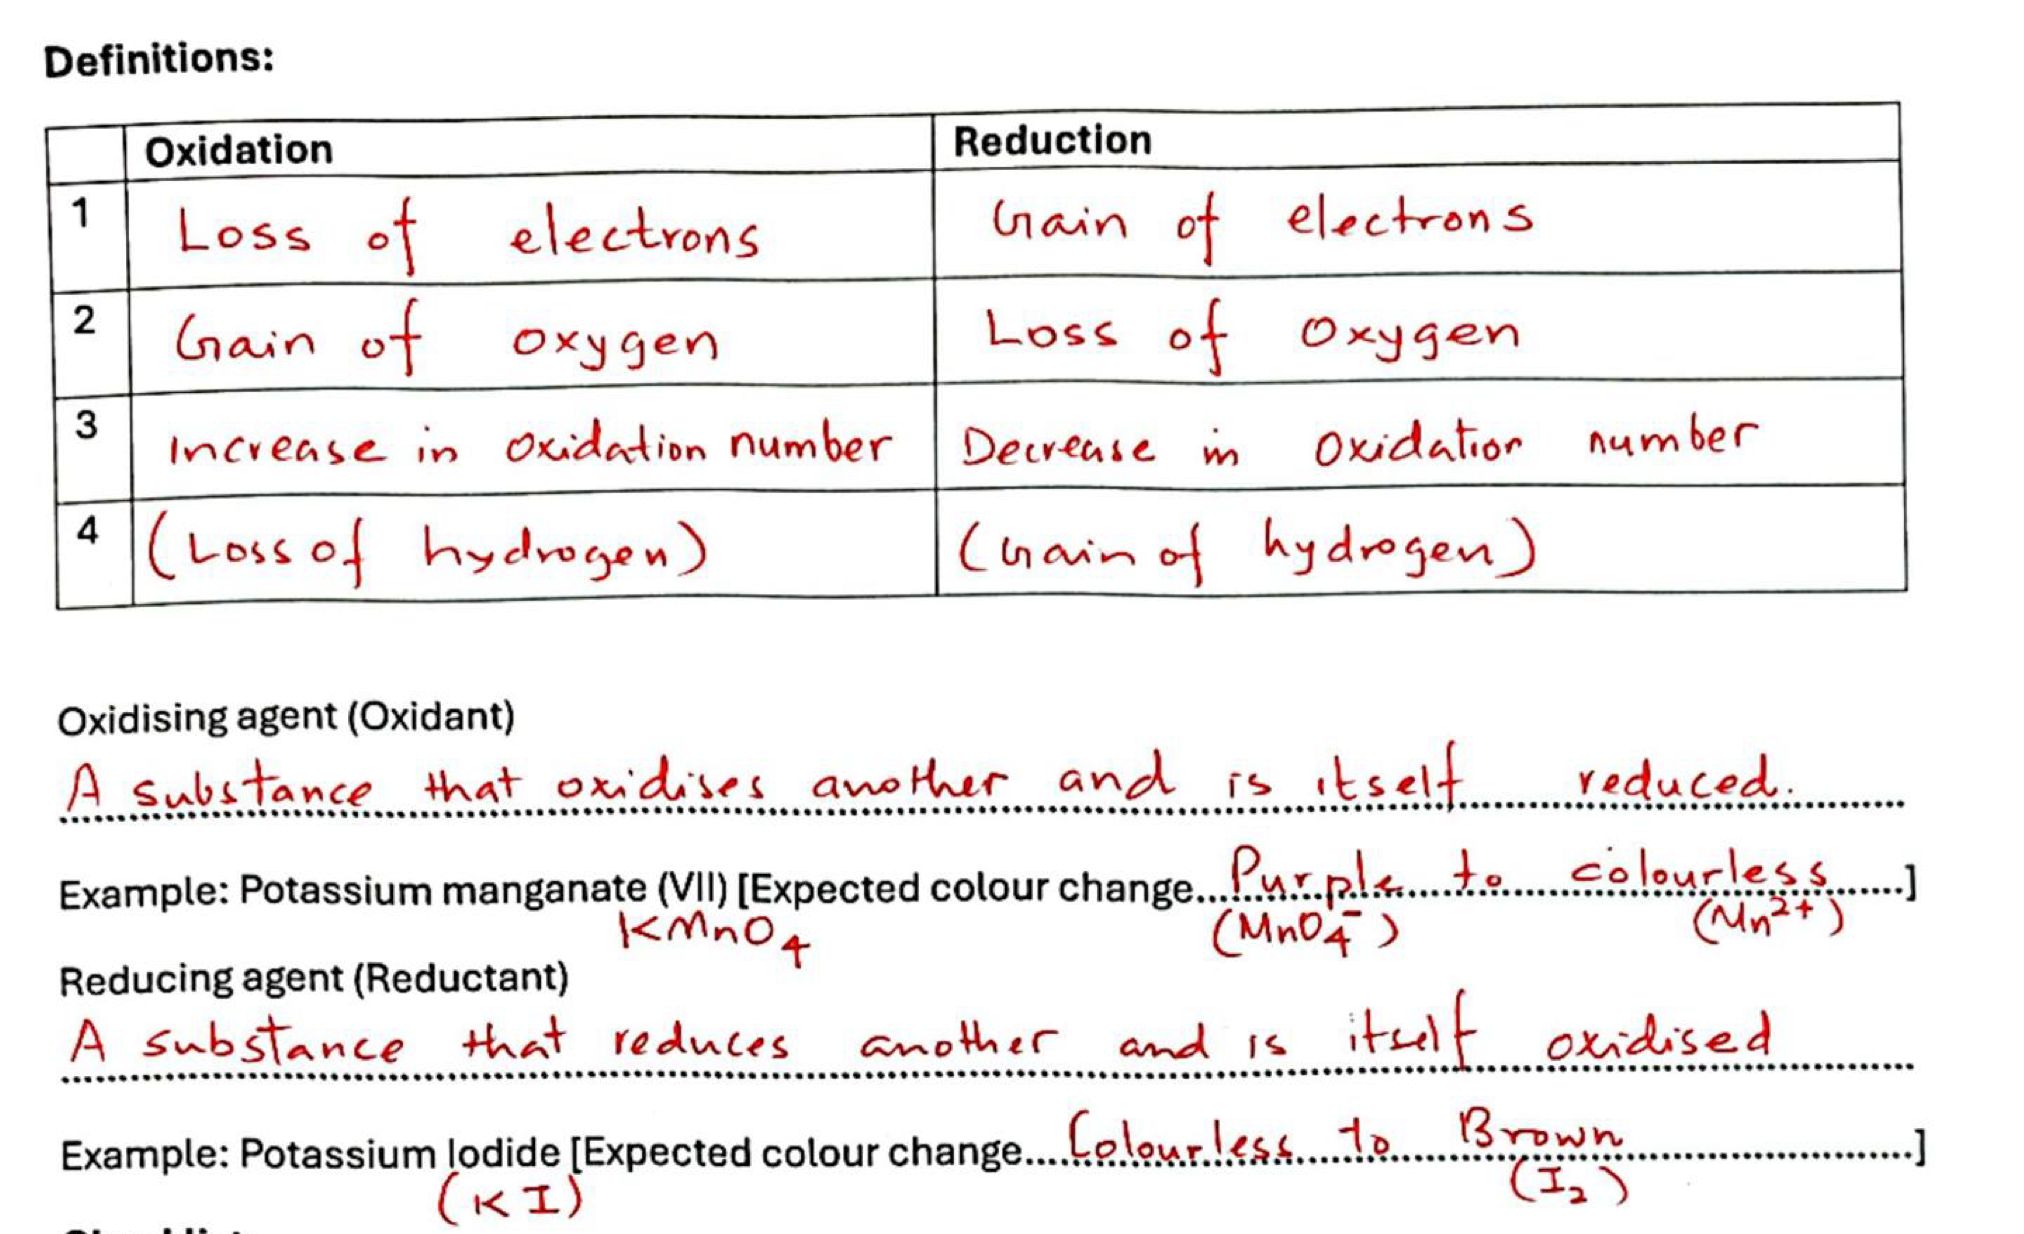 Definitions:
Oxidation Reduction
1 Loss of electrons Gain of electrons
2 Gain of oxygen Loss of oxygen
3 Increase in oxidation number Decrease in oxidation number
4 (Loss of hydrogen) (Gain of hydrogen)
Oxidising agent (Oxidant)
A substance that oxidises another and is itself reduced.
Example: Potassium manganate (VII) [Expected colour change...Purple to colourless......]
KMnO4 (MnO4⁻) (Mn²⁺)
Reducing agent (Reductant)
A substance that reduces another and is itself oxidised
Example: Potassium Iodide [Expected colour change....Colourless to Brown......]
(KI) (I₂)